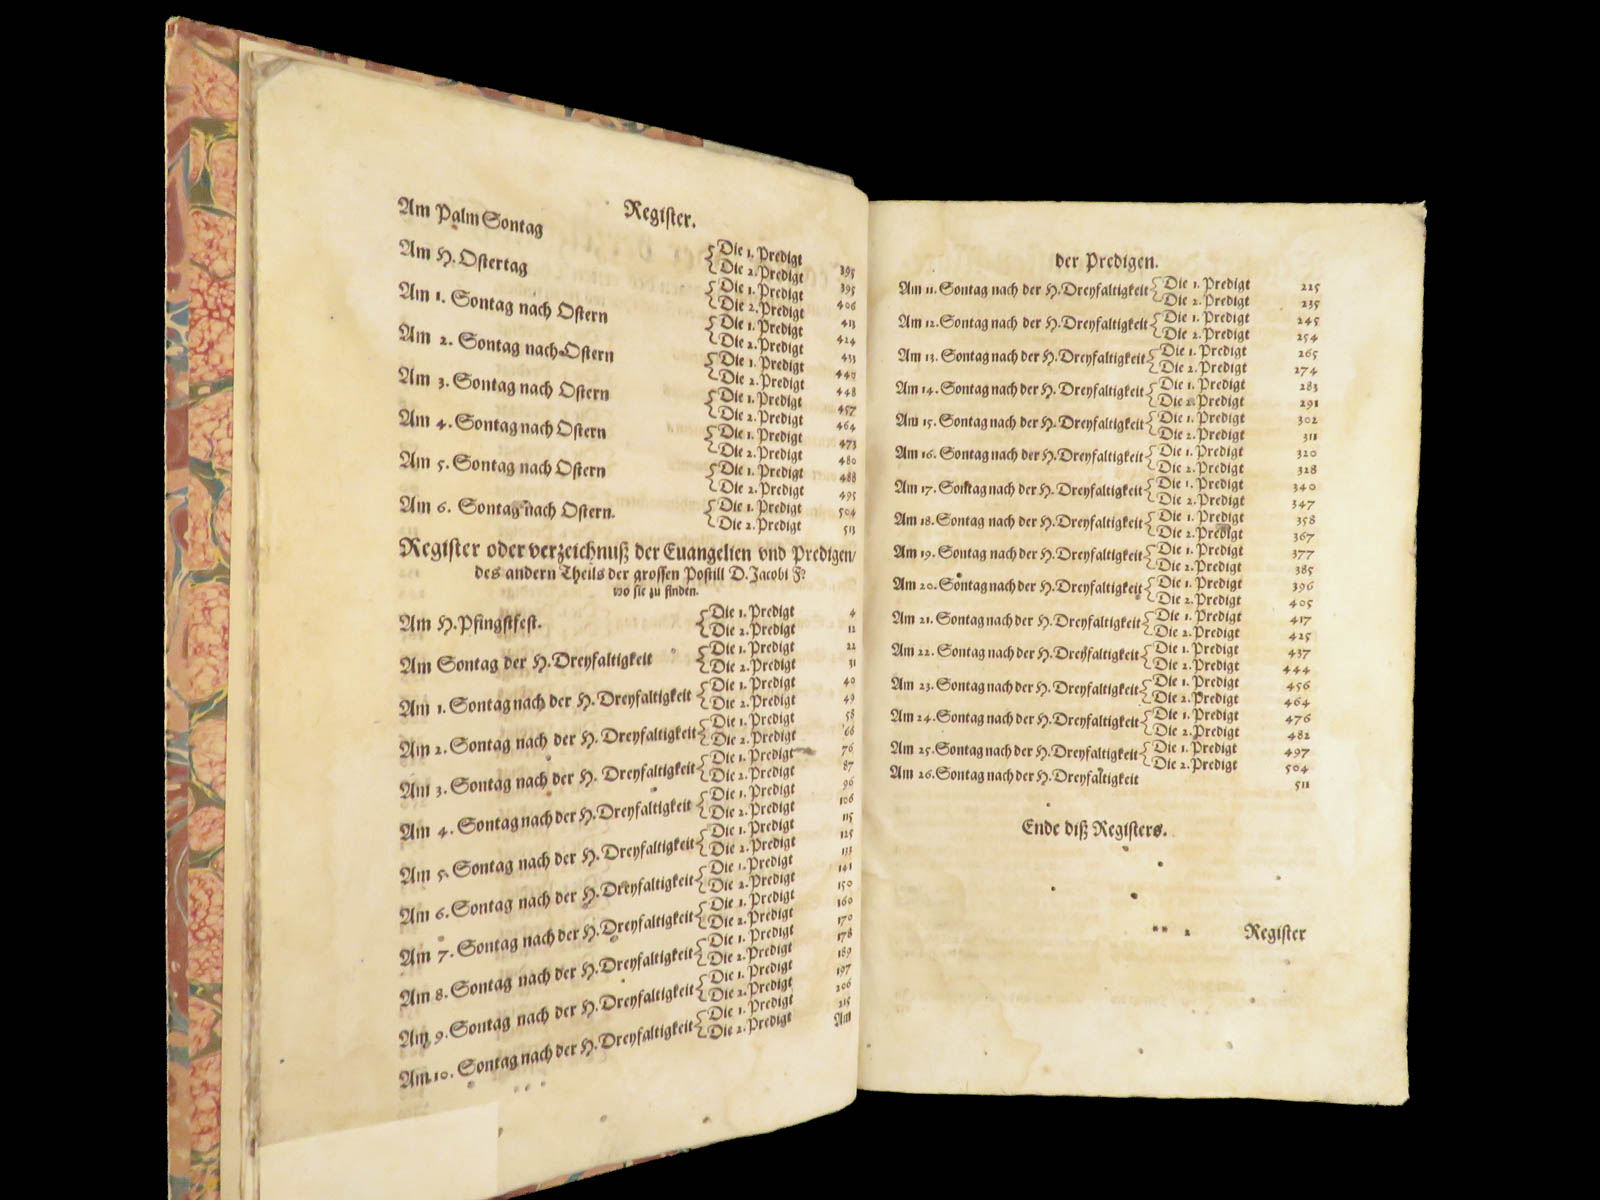 Register.
Am PalmSontag { Die 1. Predigt 395
Die 2. Predigt 395
Am H. Ostertag { Die 1. Predigt 406
Die 2. Predigt 413
Am 1. Sontag nach Ostern { Die 1. Predigt 424
Die 2. Predigt 433
Am 2. Sontag nach Ostern { Die 1. Predigt 440
Die 2. Predigt 448
Am 3. Sontag nach Ostern { Die 1. Predigt 457
Die 2. Predigt 464
Am 4. Sontag nach Ostern { Die 1. Predigt 473
Die 2. Predigt 480
Am 5. Sontag nach Ostern { Die 1. Predigt 488
Die 2. Predigt 495
Am 6. Sontag nach Ostern. { Die 1. Predigt 504
Die 2. Predigt 513
Register oder verzeichnuß der Euangelien vnd Predigen/
des andern Theils der grossen Postill D. Jacobi F?
wo sie zu finden.
Am H. Pfingstfest. { Die 1. Predigt 4
Die 2. Predigt 12
Am Sontag der H. Dreyfaltigkeit { Die 1. Predigt 22
Die 2. Predigt 31
Am 1. Sontag nach der H. Dreyfaltigkeit { Die 1. Predigt 40
Die 2. Predigt 49
Am 2. Sontag nach der H. Dreyfaltigkeit { Die 1. Predigt 58
Die 2. Predigt 66
Am 3. Sontag nach der H. Dreyfaltigkeit { Die 1. Predigt 76
Die 2. Predigt 87
Am 4. Sontag nach der H. Dreyfaltigkeit { Die 1. Predigt 96
Die 2. Predigt 106
Am 5. Sontag nach der H. Dreyfaltigkeit { Die 1. Predigt 115
Die 2. Predigt 125
Am 6. Sontag nach der H. Dreyfaltigkeit { Die 1. Predigt 133
Die 2. Predigt 141
Am 7. Sontag nach der H. Dreyfaltigkeit { Die 1. Predigt 150
Die 2. Predigt 160
Am 8. Sontag nach der H. Dreyfaltigkeit { Die 1. Predigt 170
Die 2. Predigt 178
Am 9. Sontag nach der H. Dreyfaltigkeit { Die 1. Predigt 189
Die 2. Predigt 197
Am 10. Sontag nach der H. Dreyfaltigkeit { Die 1. Predigt 206
Die 2. Predigt 215
Am
der Predigen.
Am 11. Sontag nach der H. Dreyfaltigkeit { Die 1. Predigt 225
Die 2. Predigt 235
Am 12. Sontag nach der H. Dreyfaltigkeit { Die 1. Predigt 245
Die 2. Predigt 254
Am 13. Sontag nach der H. Dreyfaltigkeit { Die 1. Predigt 265
Die 2. Predigt 274
Am 14. Sontag nach der H. Dreyfaltigkeit { Die 1. Predigt 283
Die 2. Predigt 291
Am 15. Sontag nach der H. Dreyfaltigkeit { Die 1. Predigt 302
Die 2. Predigt 311
Am 16. Sontag nach der H. Dreyfaltigkeit { Die 1. Predigt 320
Die 2. Predigt 328
Am 17. Sontag nach der H. Dreyfaltigkeit { Die 1. Predigt 340
Die 2. Predigt 347
Am 18. Sontag nach der H. Dreyfaltigkeit { Die 1. Predigt 358
Die 2. Predigt 367
Am 19. Sontag nach der H. Dreyfaltigkeit { Die 1. Predigt 377
Die 2. Predigt 385
Am 20. Sontag nach der H. Dreyfaltigkeit { Die 1. Predigt 396
Die 2. Predigt 405
Am 21. Sontag nach der H. Dreyfaltigkeit { Die 1. Predigt 417
Die 2. Predigt 425
Am 22. Sontag nach der H. Dreyfaltigkeit { Die 1. Predigt 437
Die 2. Predigt 444
Am 23. Sontag nach der H. Dreyfaltigkeit { Die 1. Predigt 456
Die 2. Predigt 464
Am 24. Sontag nach der H. Dreyfaltigkeit { Die 1. Predigt 476
Die 2. Predigt 482
Am 25. Sontag nach der H. Dreyfaltigkeit { Die 1. Predigt 497
Die 2. Predigt 504
Am 26. Sontag nach der H. Dreyfaltigkeit 511
Ende diß Registers.
** 2 Register